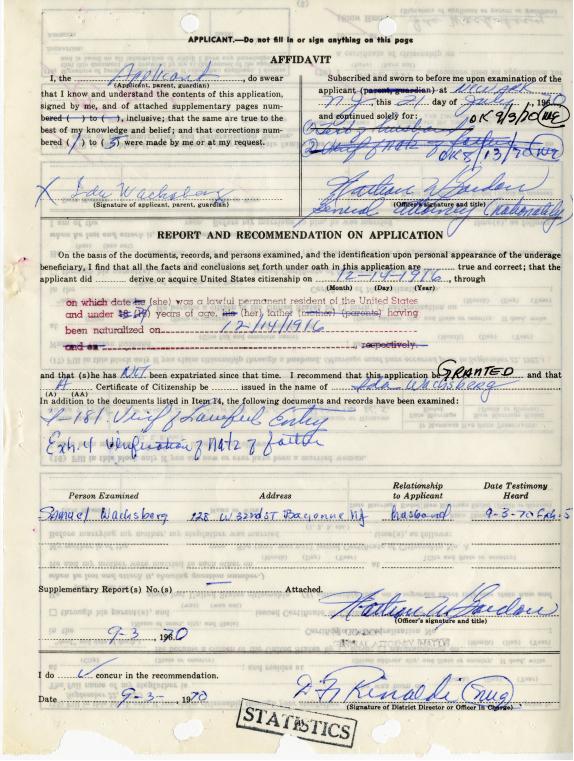 APPLICANT.—Do not fill in or sign anything on this page
AFFIDAVIT
I, the Applicant, do swear
(Applicant, parent, guardian)
that I know and understand the contents of this application,
signed by me, and of attached supplementary pages num-
bered ( ) to ( ), inclusive; that the same are true to the
best of my knowledge and belief; and that corrections num-
bered (1) to (5) were made by me or at my request.
X Ida Wachsberg
(Signature of applicant, parent, guardian)
Subscribed and sworn to before me upon examination of the
applicant (parent, guardian) at Newark
N.J. this 21 day of July, 1970
and continued solely for: OK 9/3/70
OK 8/13/70
Nathan W Gordon
(Officer's signature and title)
General Attorney (nationality)
REPORT AND RECOMMENDATION ON APPLICATION
On the basis of the documents, records, and persons examined, and the identification upon personal appearance of the underage
beneficiary, I find that all the facts and conclusions set forth under oath in this application are true and correct; that the
applicant did derive or acquire United States citizenship on 12-14-1916, through
(Month) (Day) (Year)
on which date he (she) was a lawful permanent resident of the United States
and under years of age, his (her) father (mother) (parents) having
been naturalized on 12/14/1916
and on, respectively.
and that (s)he has NOT been expatriated since that time. I recommend that this application be GRANTED and that
A Certificate of Citizenship be issued in the name of Ida Wachsberg
(A) (AA)
In addition to the documents listed in Item 14, the following documents and records have been examined:
Verif of Lawful Entry
Exh. 4 Verification of Natz of father
Person Examined Address Relationship to Applicant Date Testimony Heard
Samuel Wachsberg 128 W 32nd St Bayonne NJ husband 9-3-70 Exh-5
Supplementary Report(s) No.(s) — Attached.
Nathan W Gordon
(Officer's signature and title)
9-3, 1970
I do ✓ concur in the recommendation.
Date 9-3-, 1970
D F Rinaldi
(Signature of District Director or Officer in Charge)
STATISTICS